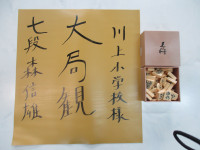 川上小学校様
大局観
七段 森信雄